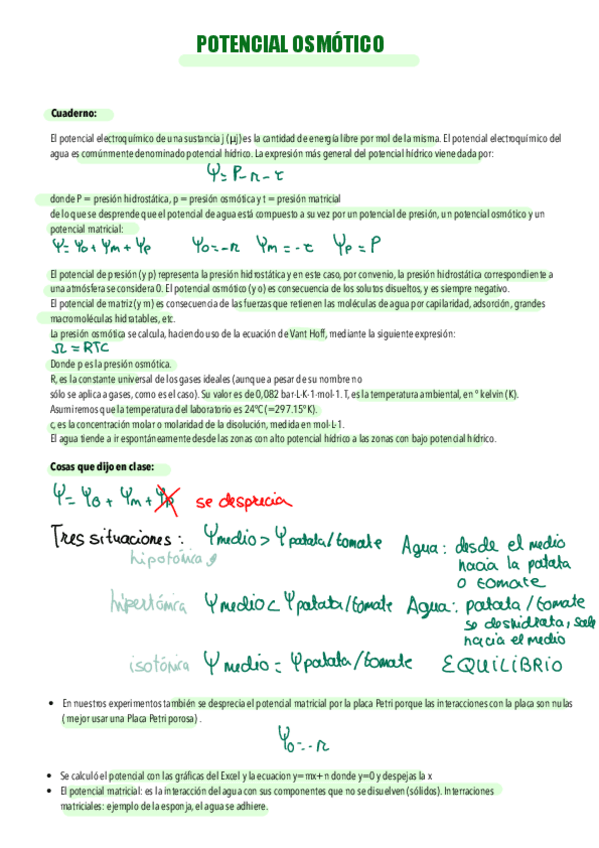 POTENCIAL OSMÓTICO
Cuaderno:
El potencial electroquímico de una sustancia j (μj) es la cantidad de energía libre por mol de la misma. El potencial electroquímico del
agua es comúnmente denominado potencial hídrico. La expresión más general del potencial hídrico viene dada por:
Ψ = P - π - τ
donde P = presión hidrostática, p = presión osmótica y t = presión matricial
de lo que se desprende que el potencial de agua está compuesto a su vez por un potencial de presión, un potencial osmótico y un
potencial matricial:
Ψ = Ψo + Ψm + Ψp Ψo = -π Ψm = -τ Ψp = P
El potencial de presión (y p) representa la presión hidrostática y en este caso, por convenio, la presión hidrostática correspondiente a
una atmósfera se considera 0. El potencial osmótico (y o) es consecuencia de los solutos disueltos, y es siempre negativo.
El potencial de matriz (y m) es consecuencia de las fuerzas que retienen las moléculas de agua por capilaridad, adsorción, grandes
macromoléculas hidratables, etc.
La presión osmótica se calcula, haciendo uso de la ecuación de Vant Hoff, mediante la siguiente expresión:
π = RTC
Donde p es la presión osmótica.
R, es la constante universal de los gases ideales (aunque a pesar de su nombre no
sólo se aplica a gases, como es el caso). Su valor es de 0,082 bar·L·K-1·mol-1. T, es la temperatura ambiental, en º kelvin (K).
Asumiremos que la temperatura del laboratorio es 24ºC (=297.15ºK).
c, es la concentración molar o molaridad de la disolución, medida en mol·L-1.
El agua tiende a ir espontáneamente desde las zonas con alto potencial hídrico a las zonas con bajo potencial hídrico.
Cosas que dijo en clase:
Ψ = Ψo + Ψm + Ψp se desprecia
Tres situaciones: Ψmedio > Ψpatata/tomate Agua: desde el medio
hipotónica hacia la patata
o tomate
hipertónica Ψmedio < Ψpatata/tomate Agua: patata/tomate
se deshidrata, sale
hacia el medio
isotónica Ψmedio = Ψpatata/tomate EQUILIBRIO
• En nuestros experimentos también se desprecia el potencial matricial por la placa Petri porque las interacciones con la placa son nulas
( mejor usar una Placa Petri porosa) .
Ψo = -π
• Se calculó el potencial con las gráficas del Excel y la ecuacion y= mx+ n donde y=0 y despejas la x
• El potencial matricial: es la interacción del agua con sus componentes que no se disuelven (sólidos). Interraciones
matriciales: ejemplo de la esponja, el agua se adhiere.